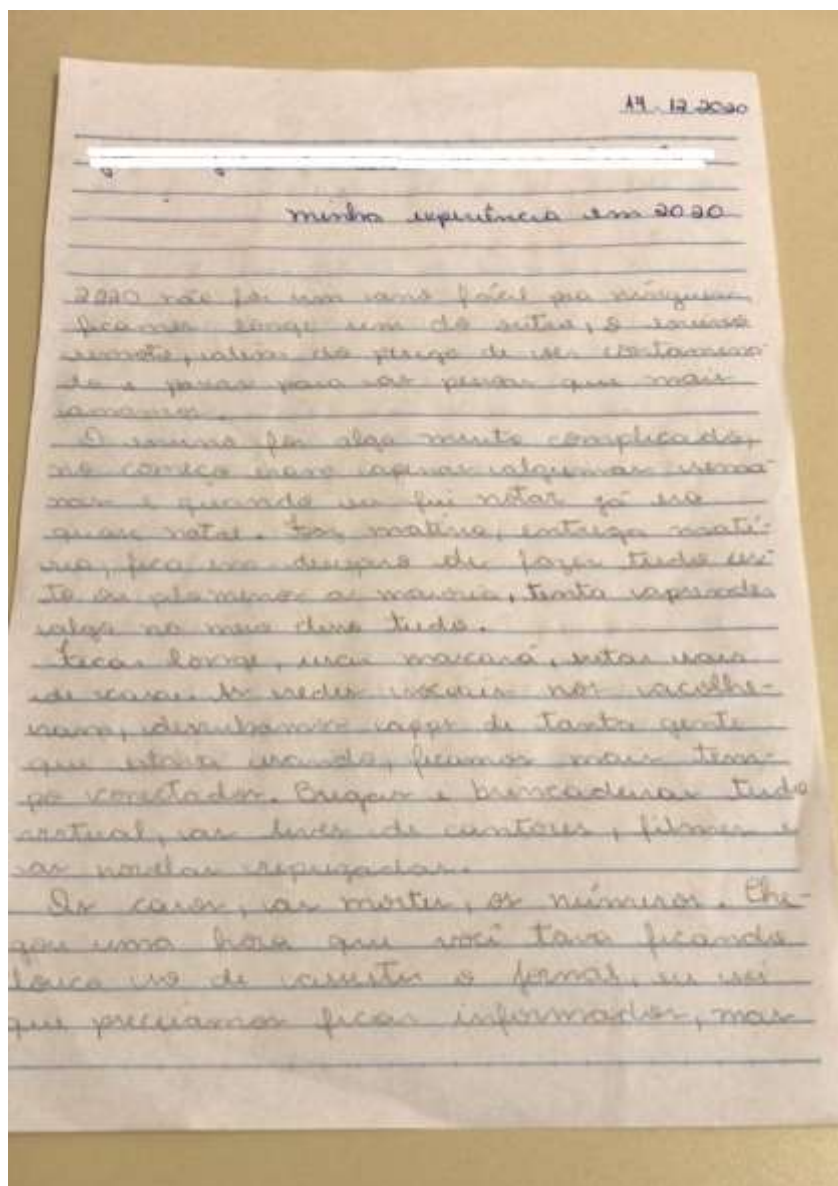 14.12.2020
minha experiência em 2020
2020 não foi um ano fácil pra ninguém,
ficamos longe um do outro, o ensino
remoto, além do perigo de ser contamina-
do e passar para as pessoas que mais
amamos.
O ensino foi algo muito complicado,
no começo eram apenas algumas sema-
nas e quando eu fui notar já era
quase natal. Faz matéria, entrega maté-
ria, fica em de fazer tudo cer-
to ou pelo menos a maioria, tenta aprender
algo no meio disso tudo.
Ficar longe, usar mascara, evitar sair
de casa. As redes sociais nos acolhe-
ram, derrubamos apps de tanta gente
que estava usando, ficamos mais tem-
po conectados. Brigas e brincadeiras tudo
virtual, as lives de cantores, filmes e
as novelas reprizadas.
Os casos, as mortes, os números. Che-
gou uma hora que você tava ficando
louca só de assistir o jornal, eu sei
que precisamos ficar informados, mas